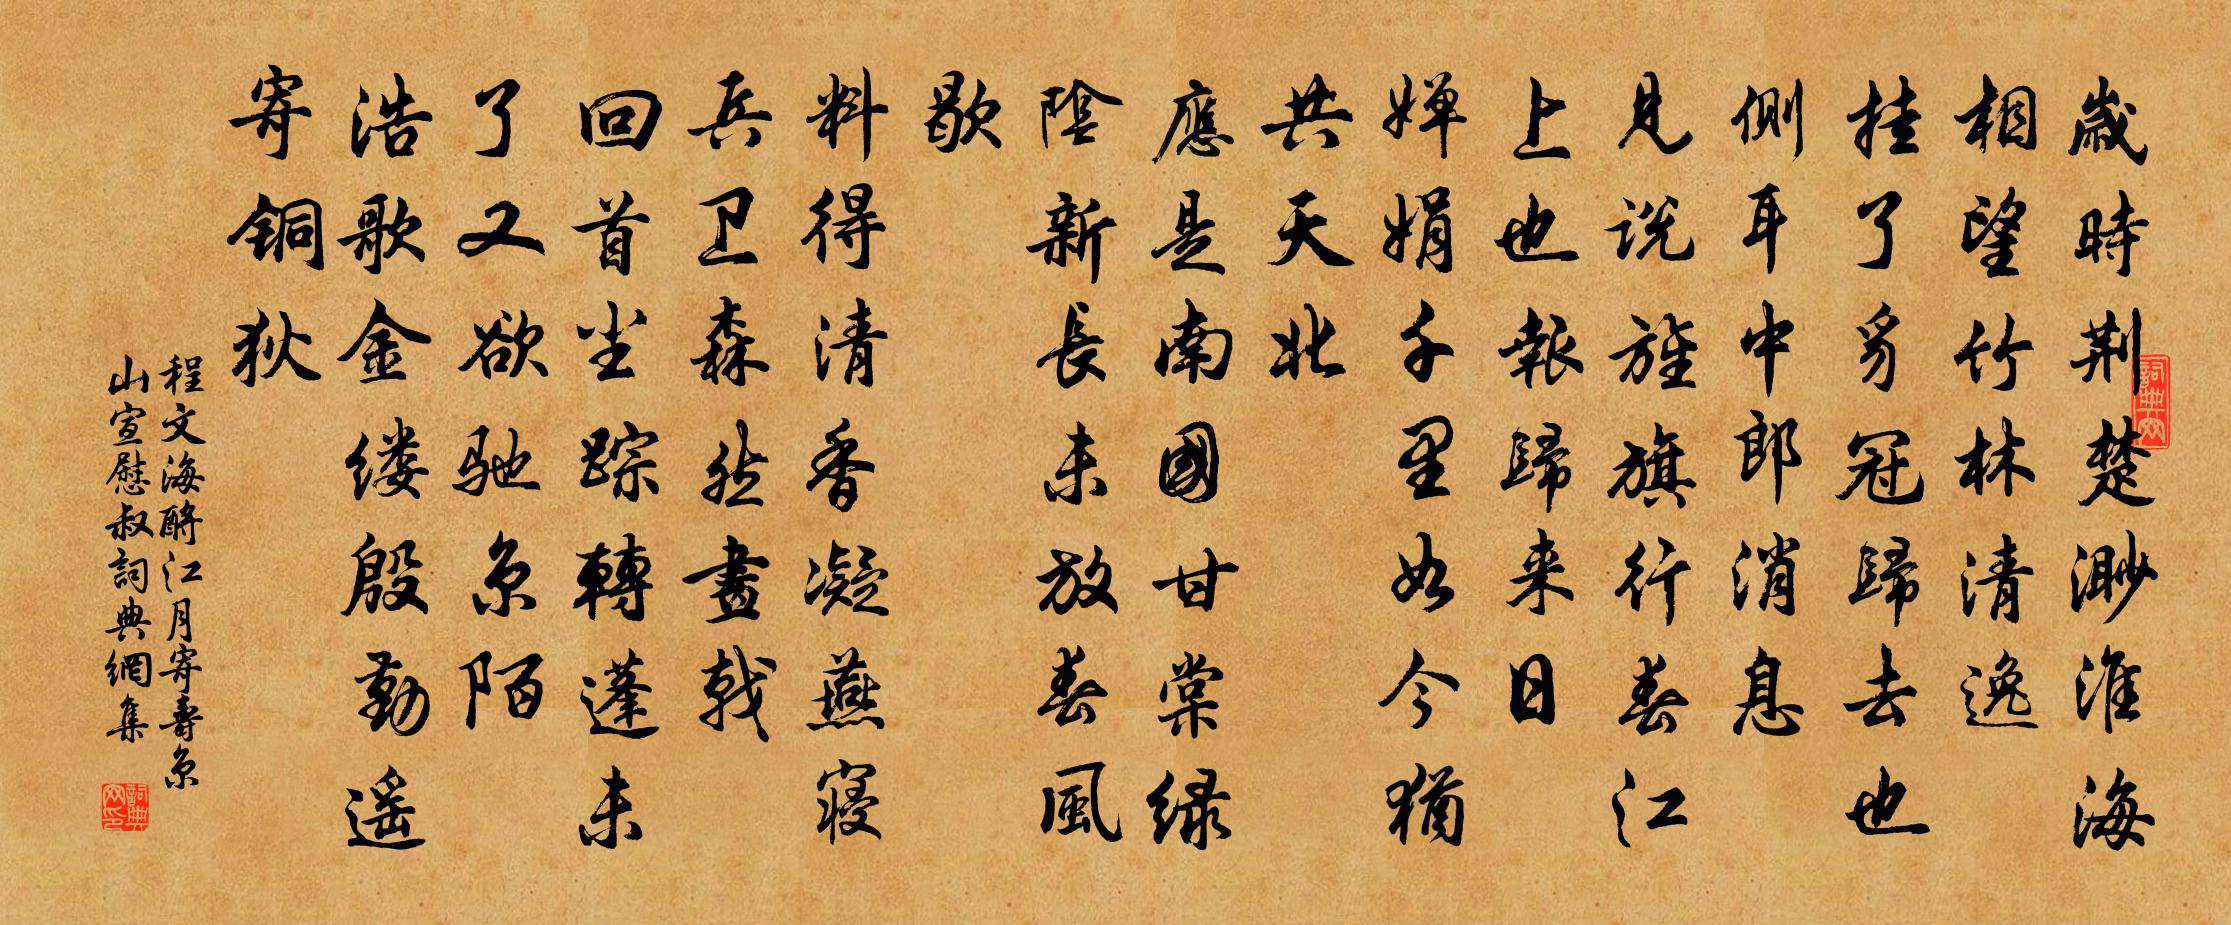 歲時荆楚渺淮海
相望竹林清逸
挂了豸冠歸去也
側耳中郎消息
見说旌旗行春江
上也報歸来日
婵娟千里如今猶
共天北
應是南國甘棠绿
陰新長未放春風
歇
料得清香凝燕寝
兵卫森然畫戟
回首尘踪轉蓬未
了又欲驰京陌
浩歌金缕殷勤遥
寄铜狄
程文海酹江月寄壽京
山宣慰叔詞典網集